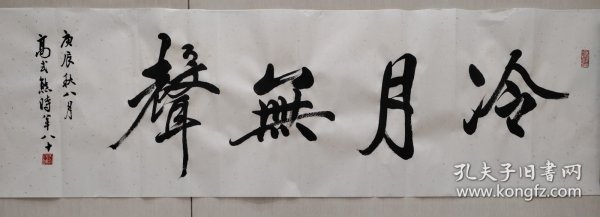 冷月無聲
庚辰秋八月
高式熊時年八十
孔夫子旧书网
www.kongfz.com